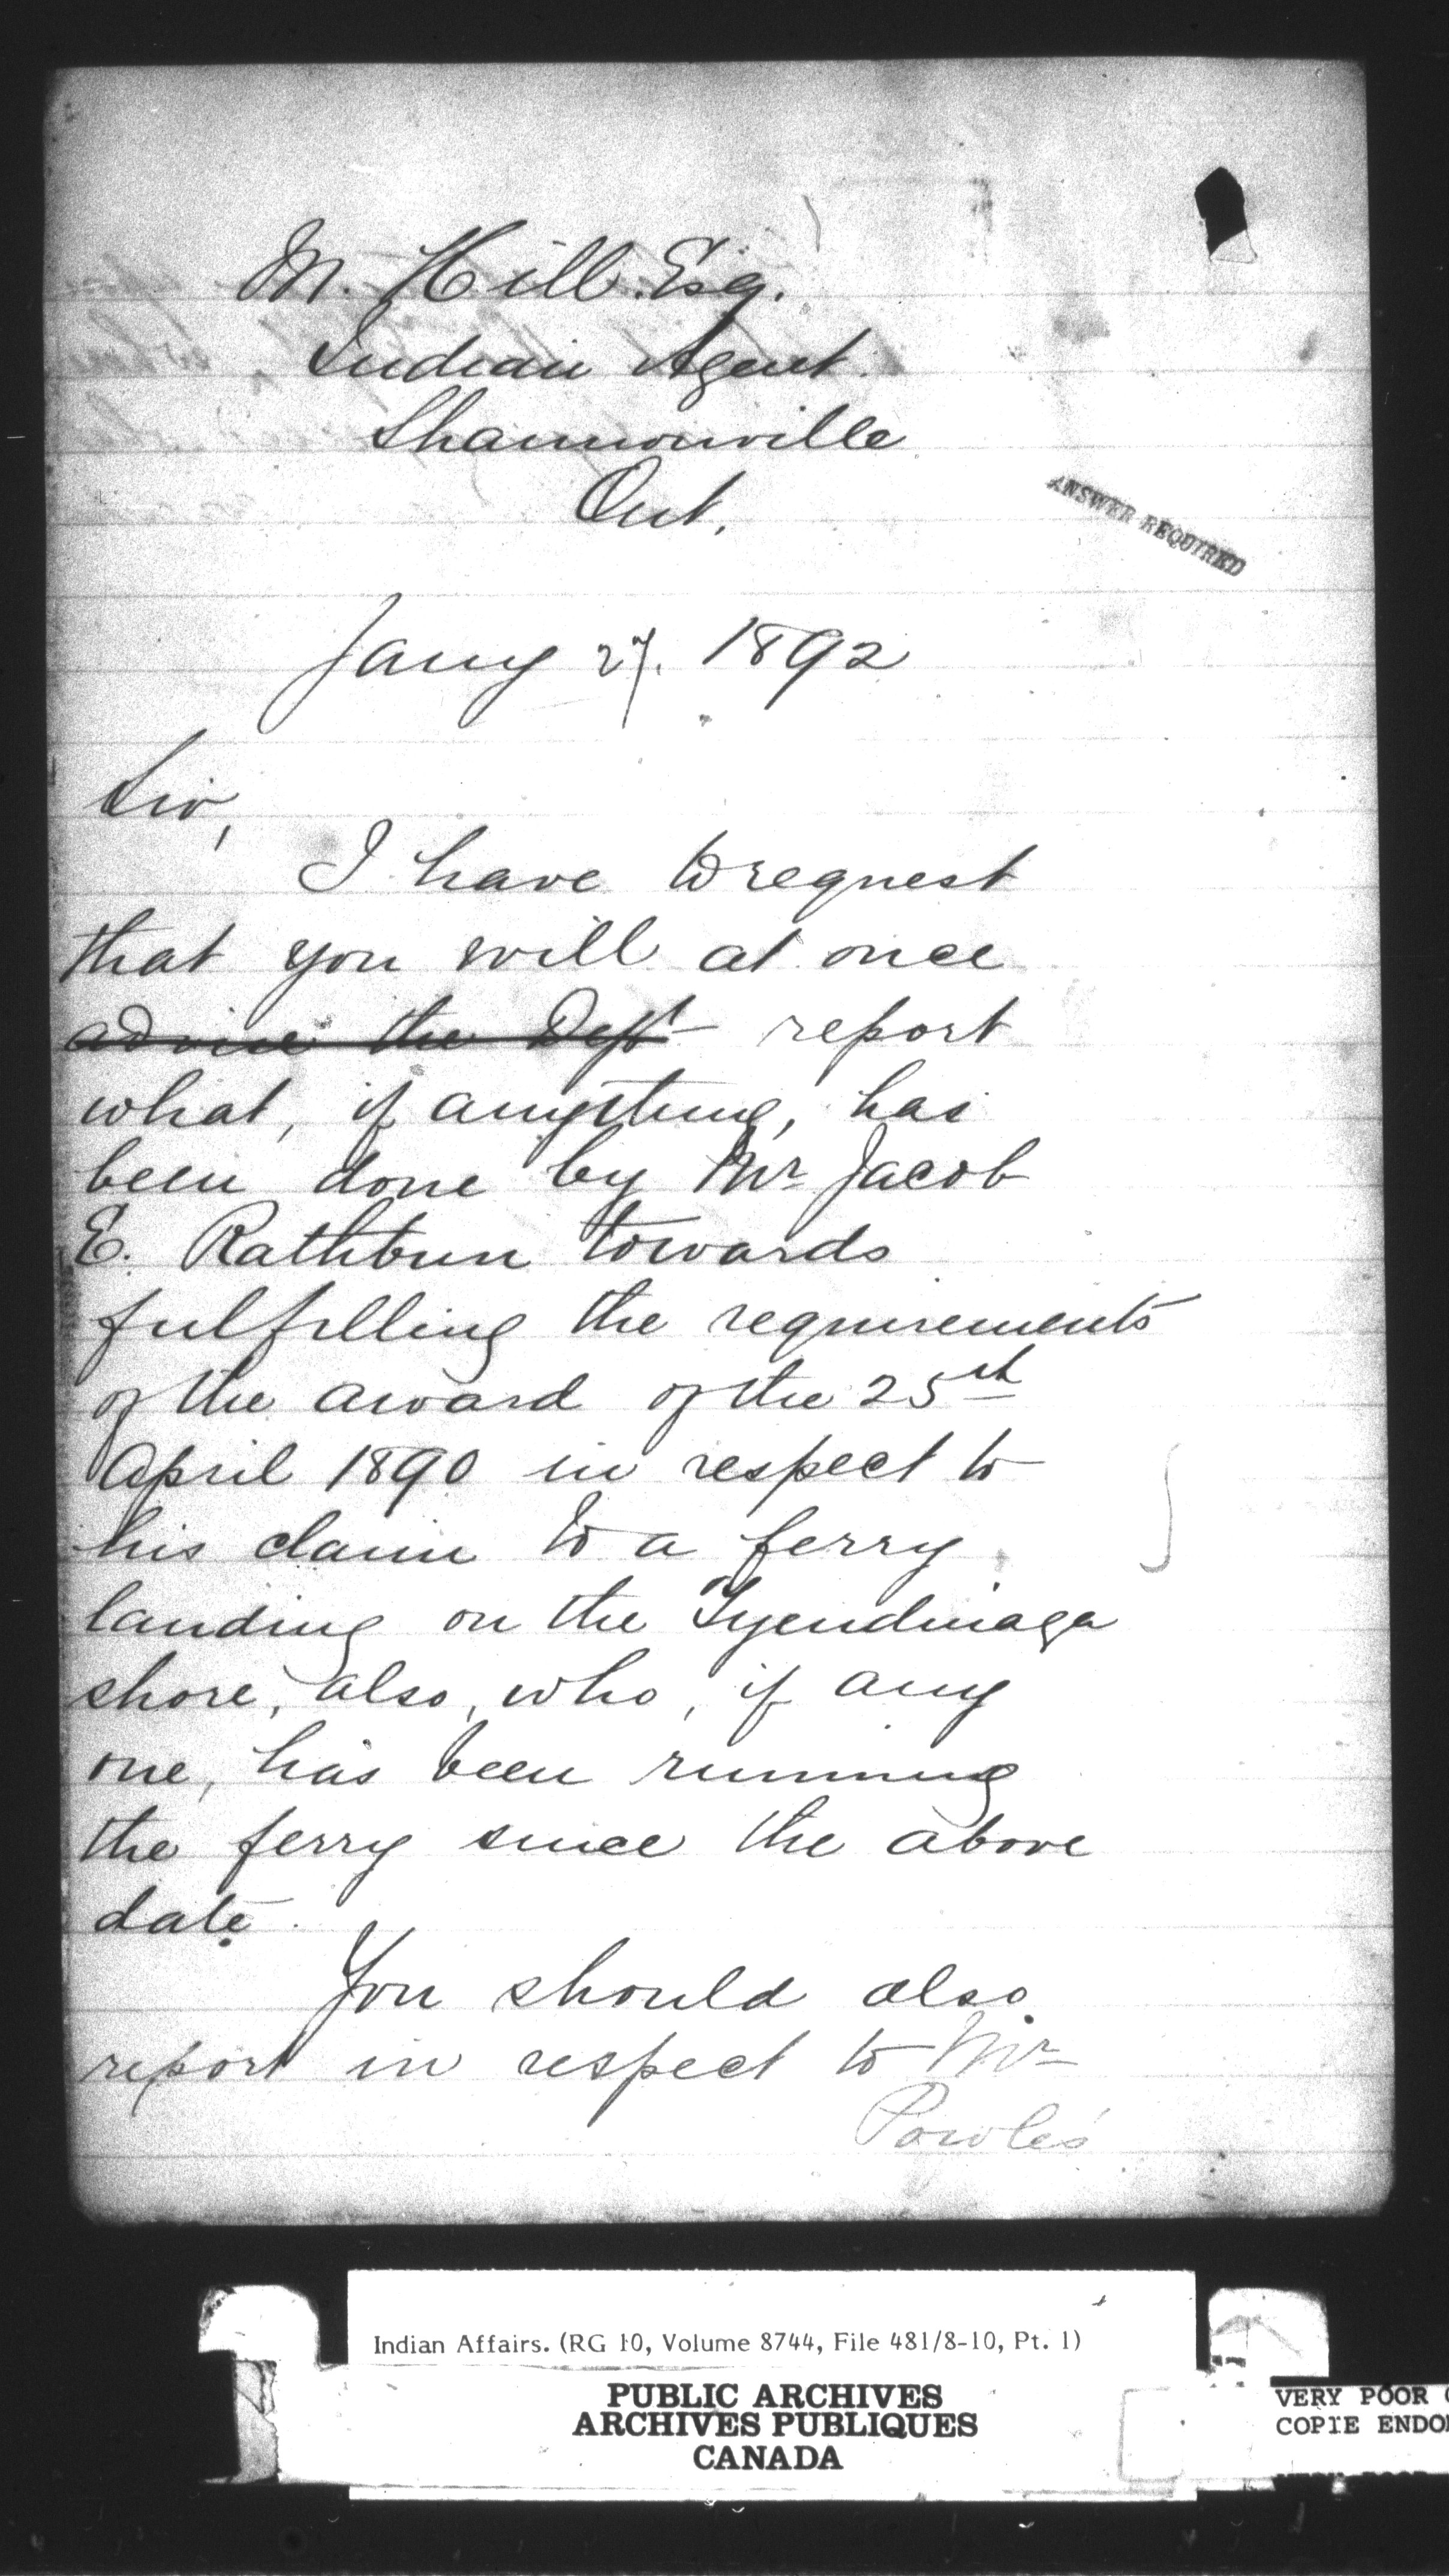 M. Hill. Esq.
Indian Agent.
Shannonville
Ont.
ANSWER REQUIRED
Jany 27. 1892
Sir,
I have to request
that you will at once
advise the Dept report
what, if anything, has
been done by Mr Jacob
E. Rathbun towards
fulfilling the requirements
of the award of the 25th
April 1890 in respect to
his claim to a ferry
landing on the Tyendinaga
shore, also, who, if any
one, has been running
the ferry since the above
date.
You should also
report in respect to Mr
Powles'
Indian Affairs. (RG 10, Volume 8744, File 481/8-10, Pt. 1)
PUBLIC ARCHIVES
ARCHIVES PUBLIQUES
CANADA
VERY POOR
COPIE ENDO